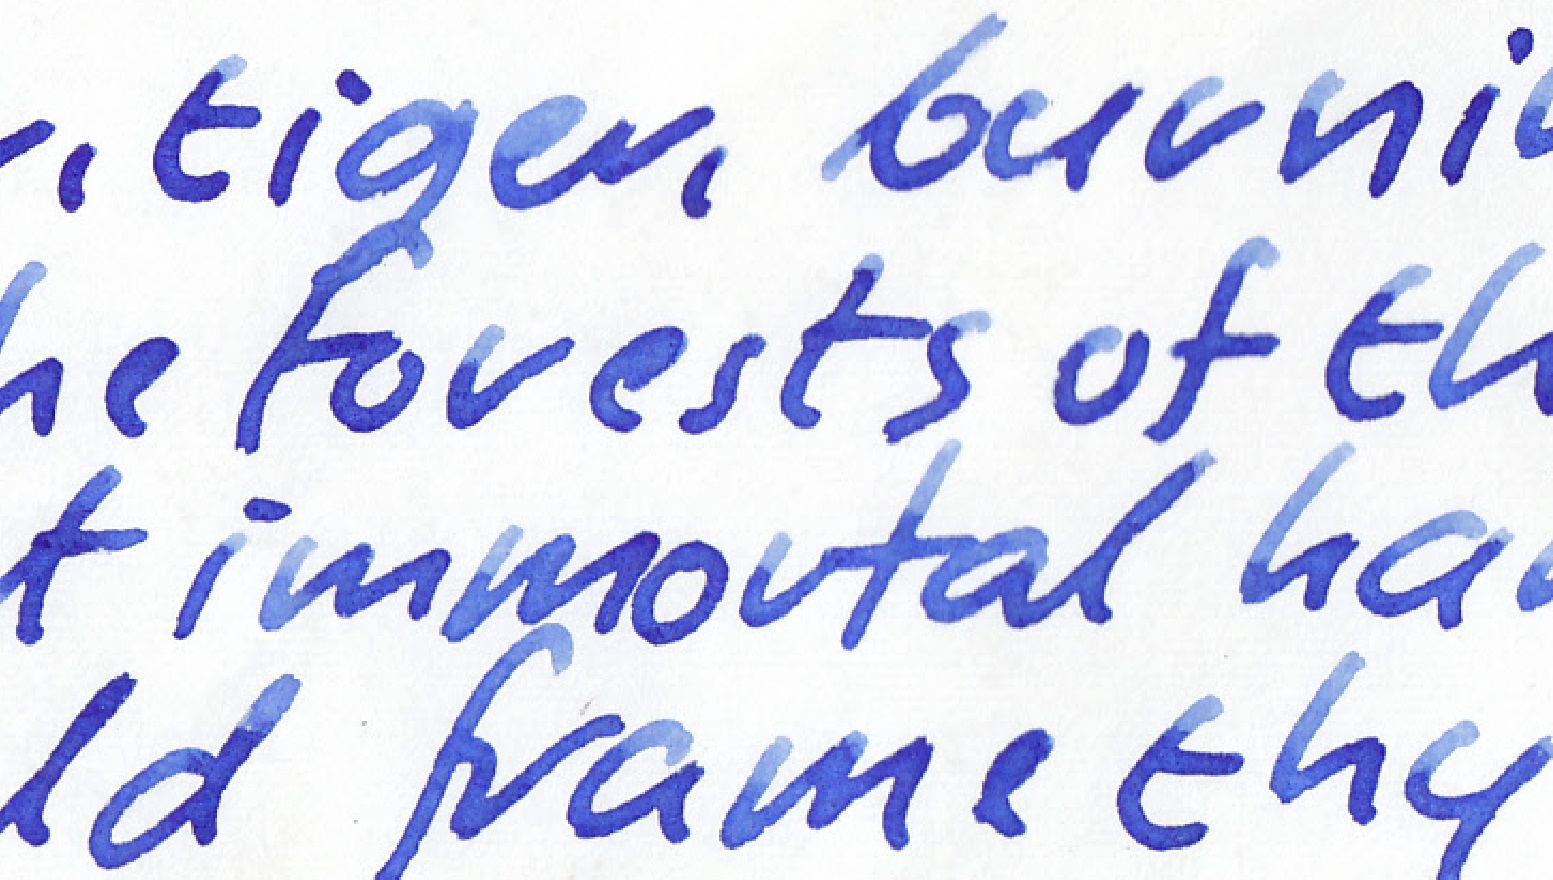 r, tiger, burni
he forests of th
t immortal han
ld frame thy